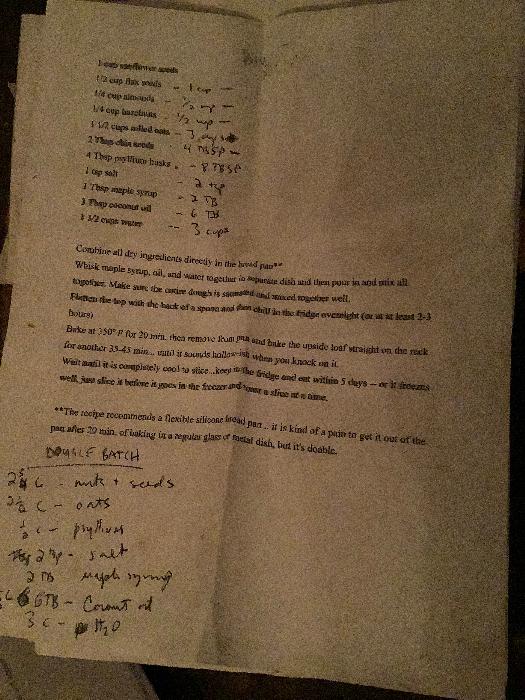 1 cup sunflower seeds
1/2 cup flax seeds - 1 cup -
1/4 cup almonds - 1/2 cup -
1/4 cup hazelnuts - 1/2 cup -
1 1/2 cups rolled oats - 3 cups
2 Tbsp chia seeds 4 TBSP -
4 Tbsp psyllium husks - 8 TBSP
1 tsp salt - 2 tsp
1 Tbsp maple syrup - 2 TB
3 Tbsp coconut oil - 6 TB
1 1/2 cups water -- 3 cups
Combine all dry ingredients directly in the bread pan**
Whisk maple syrup, oil, and water together in separate dish and then pour in and mix all
together. Make sure the entire dough is saturated and mixed together well.
Flatten the top with the back of a spoon and then chill in the fridge overnight (or at at least 2-3
hours)
Bake at 350° F for 20 min, then remove from pan and bake the upside loaf straight on the rack
for another 35-45 min... until it sounds hollow-ish when you knock on it.
Wait until it is completely cool to slice...keep in the fridge and eat within 5 days – or it freezes
well, just slice it before it goes in the freezer and toast a slice at a time.
**The recipe recommends a flexible silicone bread pan... it is kind of a pain to get it out of the
pan after 20 min. of baking in a regular glass or metal dish, but it's doable.
DOUBLE BATCH
C - nuts + seeds
2 1/2 C - oats
1/2 C - psyllium
2 tsp - salt
2 TB maple syrup
6 TB - Coconut oil
3 C - H2O